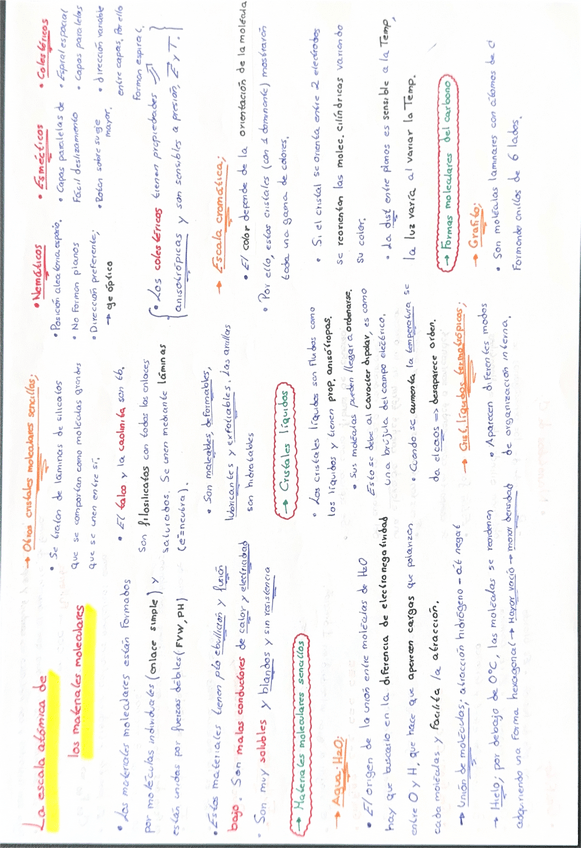 La escala atómica de
los materiales moleculares
• Los materiales moleculares están formados
por moléculas individuales (enlace simple) y
están unidos por fuerzas débiles (FVW, PH)
• Estos materiales tienen pto ebullición y fusión
bajo. Son malos conductores de calor y electricidad
• Son muy solubles y blandos y sin resistencia
→ Materiales moleculares sencillos
→ Agua: H2O;
• El origen de la unión entre moléculas de H2O
hay que buscarlo en la diferencia de electronegatividad
entre O y H, que hace que aparezcan cargas que polarizan
cada molécula y facilita la atracción.
→ Unión de moléculas; atracción hidrógeno - at. negat
→ Hielo; por debajo de 0ºC, las moléculas se reordenan
adquiriendo una forma hexagonal → Mayor vacío → menor densidad
→ Otros cristales moleculares sencillos;
• Se tratan de láminas de silicatos
que se comportan como moléculas grandes
que se unen entre sí.
• El talco y la caolinita son tb.
son filosilicatos con todos los enlaces
saturados. Se unen mediante láminas
• Son moleables, deformables,
lubricantes y exfoliables. Las arcillas
son hidratables
→ Cristales líquidos
• Los cristales líquidos son fluidos como
los líquidos y tienen prop. anisótropas.
• Sus moléculas pueden llegar a ordenarse.
Esto se debe al carácter dipolar, es como
una brújula del campo eléctrico.
• Cuando se aumenta la temperatura se
da el caos => desaparece orden.
→ Crist. líquidos termotrópicos;
• Aparecen diferentes modos
de organización interna.
• Nemáticos
• Posición aleatoria espacio,
• No forman planos
• Dirección preferente;
→ eje óptico
• Esmécticos
• Capas paralelas de
fácil deslizamiento
• Rotan sobre su eje
mayor.
• Colestéricos
• Espiral espacial
• Capas paralelas
• dirección variable
entre capas. Por ello
forman espiral.
• Los colestéricos tienen propiedades
anisotrópicas y son sensibles a presión, Z y T.
→ Escala cromática;
• El color depende de la orientación de la molécula
• Por ello, estos cristales (con λ dominante) mostrarán
toda una gama de colores.
• Si el cristal se orienta entre 2 electrodos
se reorientan las molec. cilíndricas variando
su color.
• La dist entre planos es sensible a la Temp,
la luz varía al variar la Temp.
→ Formas moleculares del carbono
→ Grafito;
• Son moléculas laminares con átomos de C
formando anillos de 6 lados.